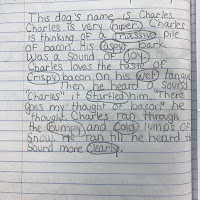 This dog's name is Charles.
Charles is very hiper. Charles
is thinking of a massive pile
of bacon. His raspy bark
was a sound of joy.
Charles loves the taste of
Crispy bacon on his wet tongue
Then he heard a sound
"Charles" it startled him. "There
goes my thought of bacon" he
thought. Charles ran through
the bumpy and cold lumps of
Snow. He ran till he heard the
Sound more clearly.